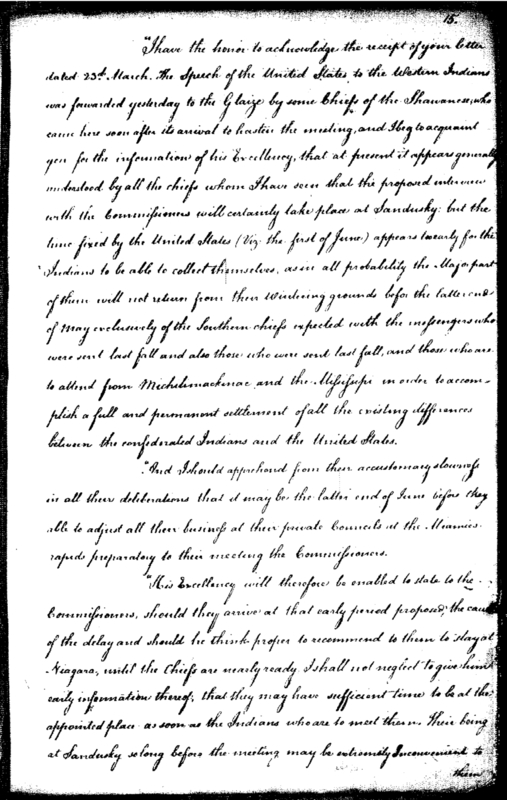 15.
"I have the honor to acknowledge the receipt of your letter
dated 23d. March. The Speech of the United States, to the Western Indians
was forwarded yesterday to the Glaize by some Chiefs of the Shawanese, who
came here soon after its arrival to hasten the meeting, and I beg to acquaint
you for the information of his Excellency, that at present it appears generally
understood by all the chiefs whom I have seen that the proposed interview
with the Commissioners will certainly take place at Sandusky: but the
time fixed by the United States (Viz. the first of June) appears too early for the
Indians to be able to collect themselves, as in all probability the Major part
of them will not return from their Wintering grounds before the latter end
of May exclusively of the Southern chiefs expected with the messengers who
were sent last fall and also those who were sent last fall, and those who are
to attend from Michilimackinac and the Missisipi in order to accom-
plish a full and permanent settlement of all the existing differences
between the confederated Indians and the United States.
"And I should apprehend from their accustomary slowness
in all their deliberations that it may be the latter end of June before they
able to adjust all their business at their private Councils at the Miamies
rapids preparatory to their meeting the Commissioners.
"His Excellency will therefore be enabled to state to the
Commissioners, should they arrive at that early period proposed, the cause
of the delay and should he think proper to recommend to them to stay at
Niagara, until the Chiefs are nearly ready. I shall not neglect to give him
early information thereof, that they may have sufficient time to be at the
appointed place as soon as the Indians who are to meet them. Their being
at Sandusky so long before the meeting may be extremely Inconvenient to
them